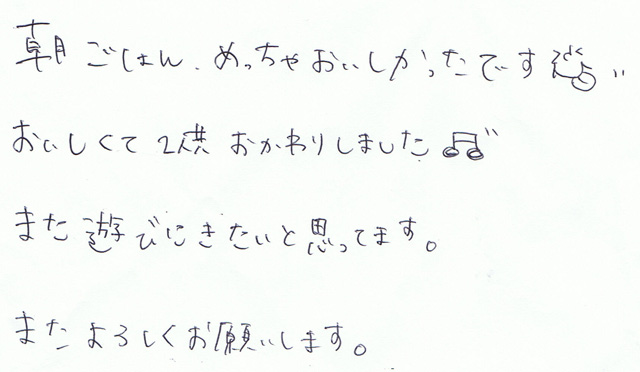 朝ごはん、めっちゃおいしかったです
おいしくて2人共おかわりしました♫
また遊びにきたいと思ってます。
またよろしくお願いします。